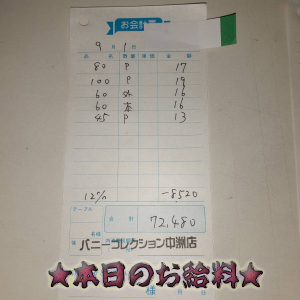 お会計
9月1日
品名 数量 単価 金額
80 P 17
100 P 19
60 外 16
60 本 16
45 P 13
12% -8520
テーブル
合計 72,480
名様
バニーコレクション中洲店
★本日のお給料★
様 月 日